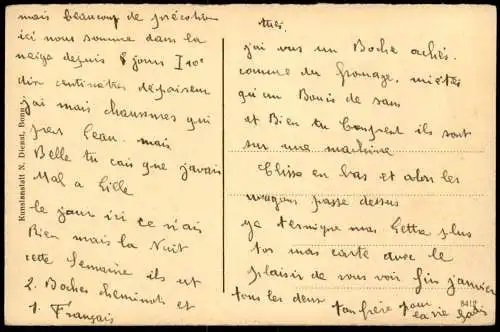 mais beaucoup de précotion
ici nous somme dans la
neige depuis 8 jours
dix centimetres dépaiseur
j'ai mais chaussures qui
pren leau mais
Belle tu sais que j'avais
Mal a Lille
le jour ici ce n'ai
Rien mais la Nuit
cette Semaine ils ut
2. Boches cheminots et
1. Français
Kunstanstalt N. Dienst, Bonn
tués.
j'ai vus un Boche achés.
comme du fromage,
qu'un Bouis de sam
et Bien tu Comprent ils sont
sur une machine
Glisse en bas et alor les
wagons passe dessus
ça termique mas Letta plus
tos mas carte avec le
plaisir de vous voir fin janvier
tous les deux ton frère pour
la vie
8412